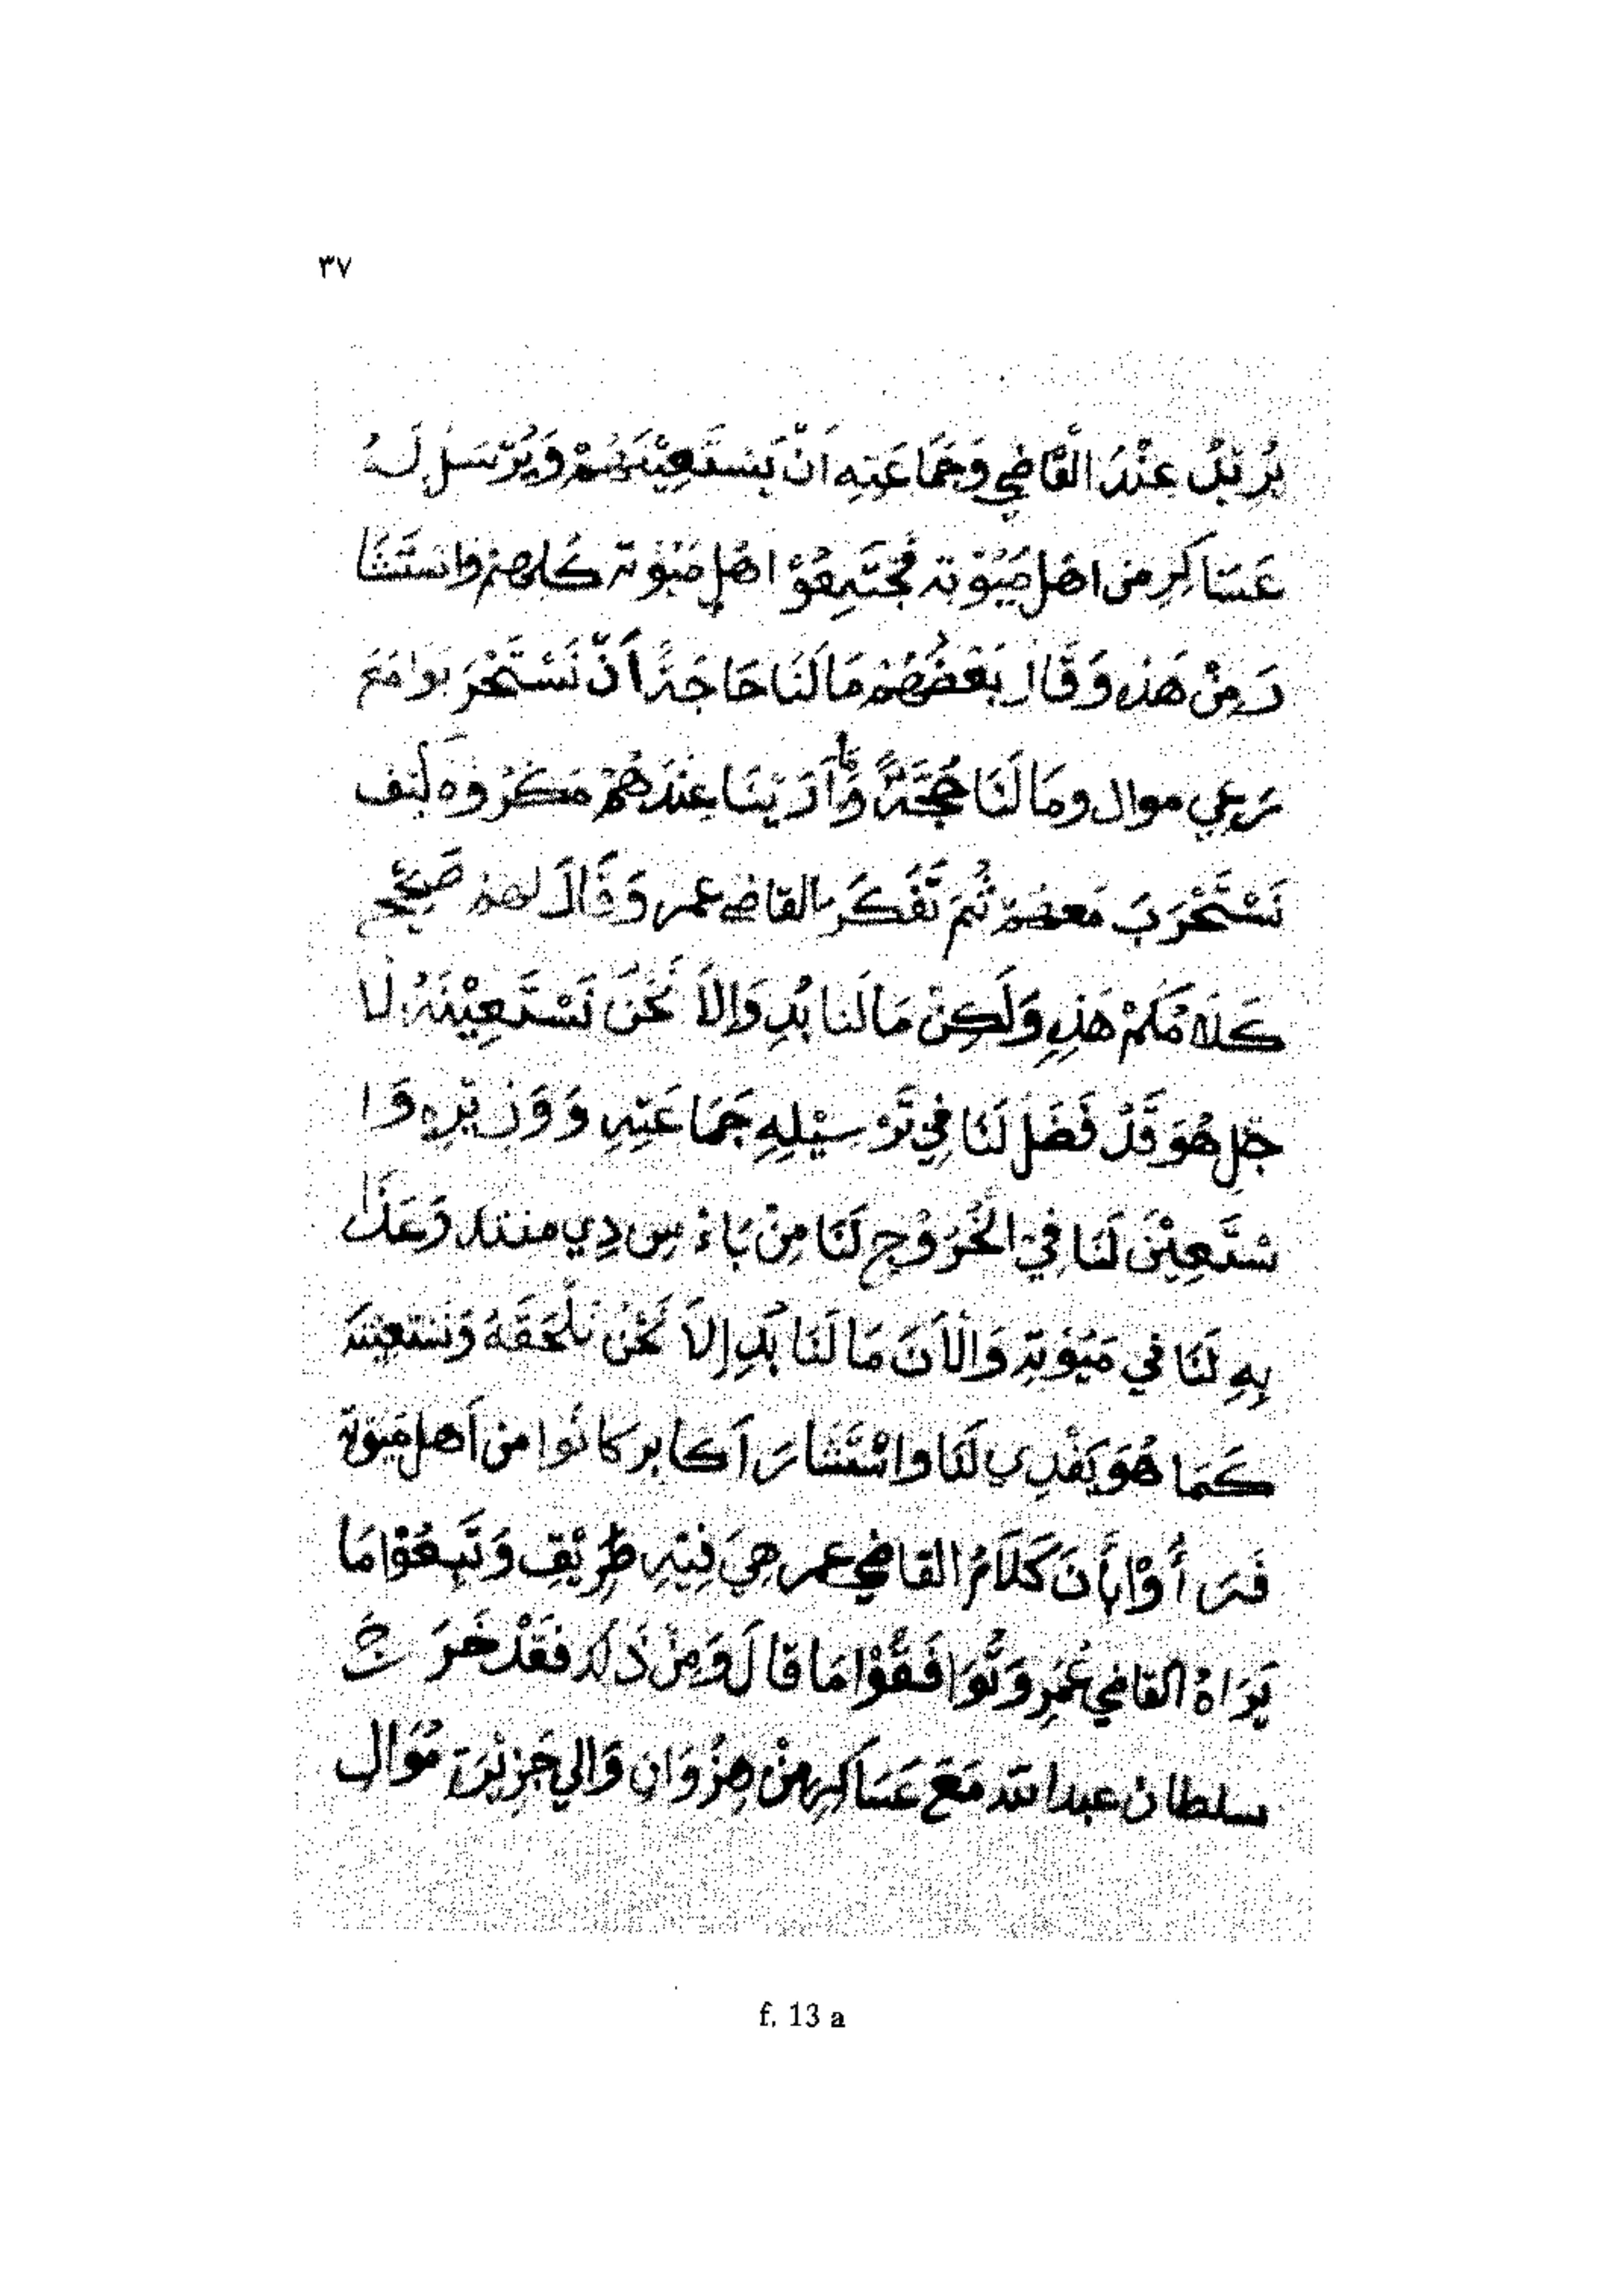 ٣٧
يُرِيْدُ عِنْدُ الْقَاضِي وَجَمَاعَتِهِ اَنْ يَسْتَعِيْنَهُمْ وَيُرْسَلْ لَهُ
عَسَاكِرِ مِنْ اهْلِ مَيُوْتة فَجْتَمِعُوْا اهْلِ مَيُوْتة كُلهمْ وَاسْتَشَا
رَ مِنْ هَذِه وَقَالَ بَعْضُهُمْ مَا لَنَا حَاجَةً اَنْ نَسْتَحْرَبوا مَعَ
رَعِي موال وما لَنَا حُجَّةً وَلَا اَرَيْنَا عِنْدَهُمْ مَكْرُوه لَيف
نَسْتَحْرَبَ مَعهمْ ثُمَ تَفَكَرَ القاضي عمر وَقَالَ لهمْ صَحِيْح
كَلَامُكُمْ هَذِهِ وَلَكِنْ مَا لَنا بُدِ وَاِلاَ نَحْنُ نَسْتَعِيْنَهُ لَا
جَلِ هُوَ قَدْ فَضَلْ لَنَا فِي تَرْسِيْلِهِ جَمَاعَتِهِ وَوَزِيْرِهِ وَا
سْتَعِيْنَ لَنَا فِي الْخُرُوْجِ لَنَا مِنْ بَاءْسِ دِي مننتد وَعَذَا
بِهِ لَنَا فِي مَيُوْتة وَالْاَنَ مَا لَنَا بُدِ اِلاَ نَحْنُ نَلْحَقَهُ وَنَسْتَعِيْنه
كَمَا هُوَ يَفْدِي لَنَا وَاسْتَشَارَ اَكَابِر كَانُوا مِن اَهل مَيُوْتة
فَرَأُوْا بِأَنَ كَلَامُ القاضي عمر هِيَ فِيْهِ طَرِيْقِ وَتَبِعُوْا مَا
يَرَاهُ القاضِي عُمَرِ وَتُوَافَقُوْا مَا قَالَ وَمِنْ ذَالِك فَقَدْ خَرَجَ
سلطان عبد الله مَعَ عَسَاكِرِهِ مِنْ هِزْوَانِ وَالي جَزِيْرَة مُوَالِ
f. 13 a